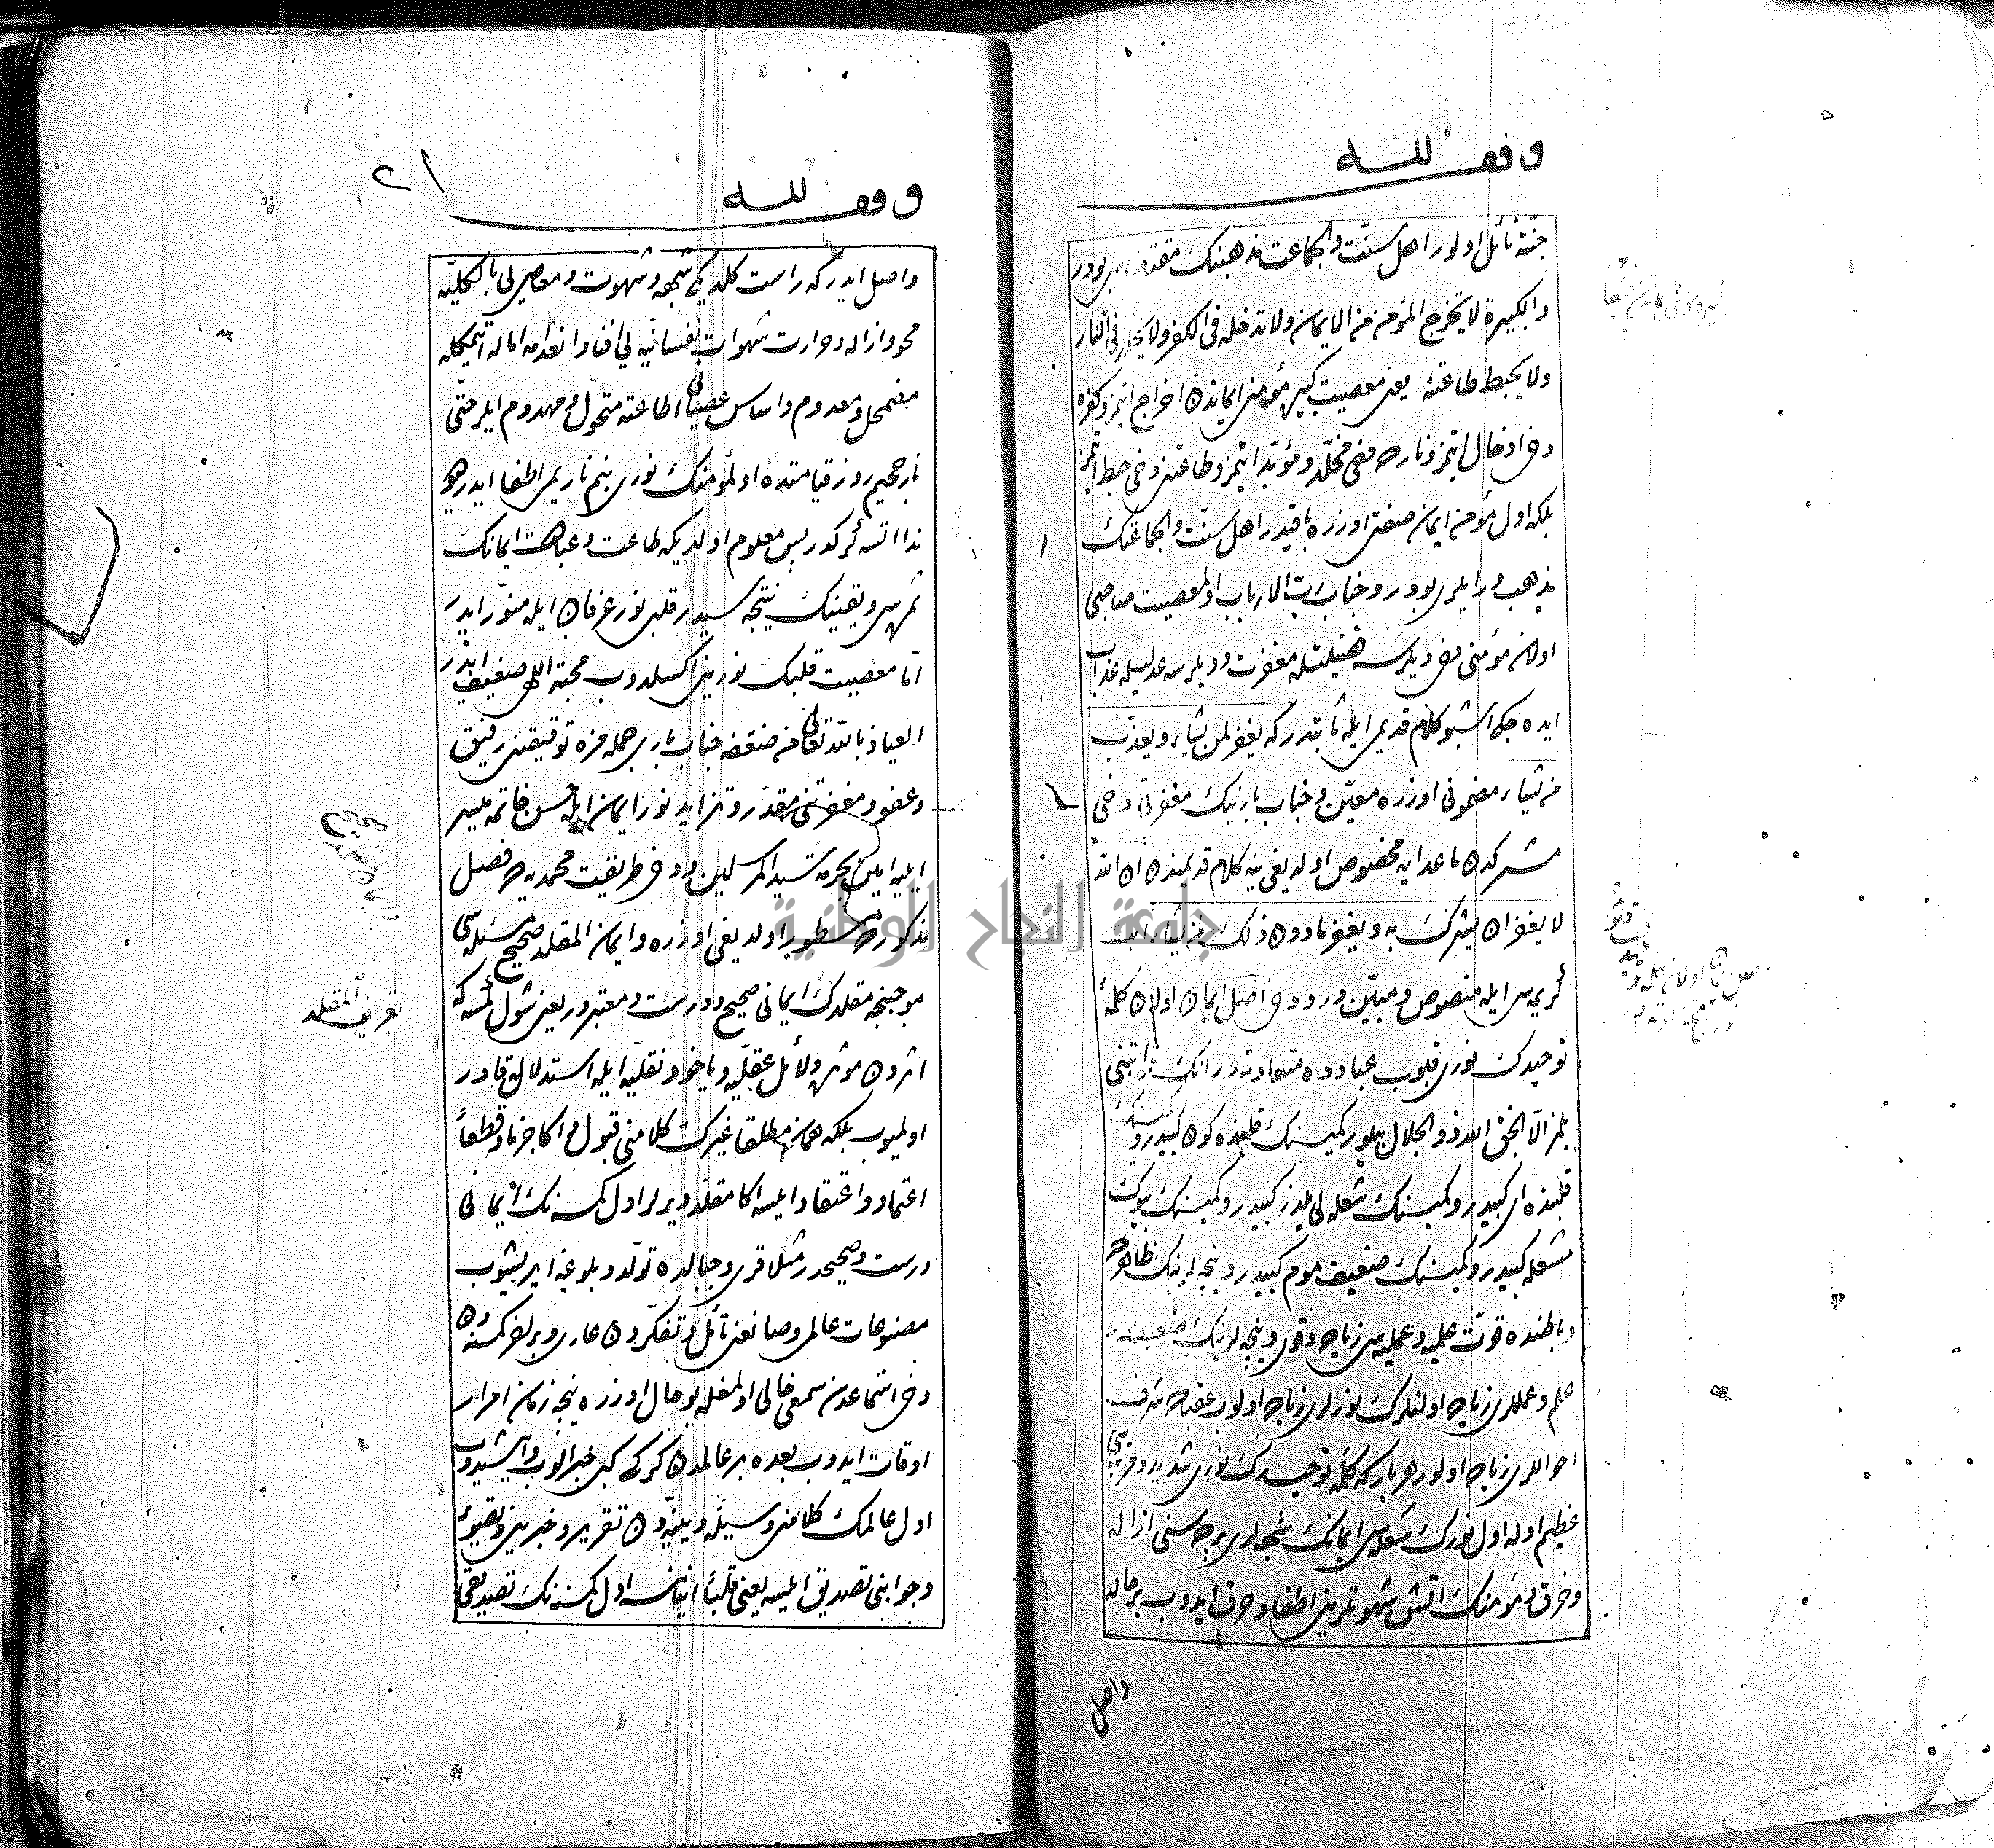 وقف لله
جنته نائل اولور اهل سنّت والجماعت مذهبنك بودر
والكبيرة لا يخرج المؤمن من الايمان ولا تدخله فى الكفر ولا يخلد فى النار
ولا يحبط طاعته يعنى معصيت كبيره مؤمنى ايماندن اخراج ايتمز وكفره
دخى ادخال ايتمز ونارده مخلّد ومؤبّد ايتمز وطاعتن دخى حبط ايتمز
بلكه اول مؤمن ايمان صفتى اوزره باقيدر اهل سنّت والجماعتك
مذهب ورايلرى بودر وجناب ربّ الارباب اول معصيت صاحبى
اولان مؤمنى ديلرسه فضيلتله مغفرت وديلرسه عدليله عذاب
ايده جكى اشبو كلام قديمى ايله ثابتدر كه يغفر لمن يشاء ويعذّب
من يشاء مضمونى اوزره معيّن وجناب بارينك مغفرتى دخى
شركدن ماعدايه مخصوص اولديغى ينه كلام قديمنده ان الله
لا يغفر ان يشرك به ويغفر ما دون ذلك لمن يشاء ايت
كريمه سى ايله منصوص ومبيّن در ودخى اصل ايمان اولان كلمهٔ
توحيدك نورى قلوب عبادده متفاوته در انك مراتبنى
بلمز الّا الحق الله ذو الجلال بيلور كمينك قلبنده كون كبيدر وكمينك
قلبنده اى كبيدر وكمينك شعله لى يلدز كبيدر وكمينك بيوك
مشعله كبيدر وكمينك ضعيف موم كبيدر ونيجه لرينك ظاهرده
وباطنده قوّت علميه وعمليه سى زياده وقوى ونيجه لرينك ضعيفدر
علم وعمللرى زياده اولنلرك نورلرى زياده اولوب عقباده شرف
احواللرى زياده اولور هر بار كه كلمهٔ توحيدك نورى شديد ومرتبه سى
عظيم اوله اول نورك شعله سى ايمانك شبهه لرى برجه سنى ازاله
وخرق ومؤمنك اتش شهوتلرينى اطفا وحرق ايدوب بر حاله
واصل
وقف لله
٢١
واصل ايدر كه راست كلديكى شبهه وشهوت ومعاصى لى بالكليّه
محو وازاله وحرارت شهوات نفسانيّه لى افنا وانعدامه اماله اتمكله
مضمحل ومعدوم واساس عصيان اطاعته متحوّل ومهدوم ايلر حتّى
نار جحيم روز قيامتده اول مؤمنك نورى بنم ناريمى اطفا ايدر ديو
ندا اتسه كركدر پس معلوم اولديكه طاعت وعبادت ايمانك
ثمره سى ويقينك نتيجه سيدر قلبى نور عرفان ايله منوّر ايدر
امّا معصيت قلبك نورينى اكسلدوب محبّة اللهى ضعيف ايدر
العياذ بالله تعالى من ضعفه جناب بارى جمله مزه توفيقنى رفيق
وعفو ومغفرتنى مقدّر وتزايد نور ايمان ايله حسن خاتمه ميسر
ايليه امين بحرمة سيّد المرسلين ودخى طريقت محمديه ده فصل
مذكورده مسطور اولديغى اوزره وايمان المقلد صحيح مسئله سى
موجبنجه مقلدك ايمانى صحيح ودرست ومعتبردر يعنى شول كمسه كه
اثردن مؤثره دلائل عقليّه وياخود نقليّه ايله استدلاله قادر
اولميوب بلكه همان مطلقا غيرك كلامنى قبول واكا جزما وقطعاً
اعتماد واعتقاد ايلسه اكا مقلّد ديرلر اول كمسنه نك ايمانى
درست وصحيحدر مثلا قرى وجبالده تولّد وبلوغه ايريشوب
مصنوعات عالمى وصانعنى تأمّل وتفكّردن عارى وبر كمسنه دن
دخى استماعدن سمعى خالى اولمغله بو حال اوزره نيجه زمان امرار
اوقات ايدوب بعده بر عالمدن كركى كبى خبر الوب وايشيدوب
اول عالمك كلامنى وسيله وبيّنه دن تقرير وخبرينى
وجوابنى تصديق ايلسه يعنى قلباً انانسه اول كمسنه نك تصديقى
تعريف المقلد